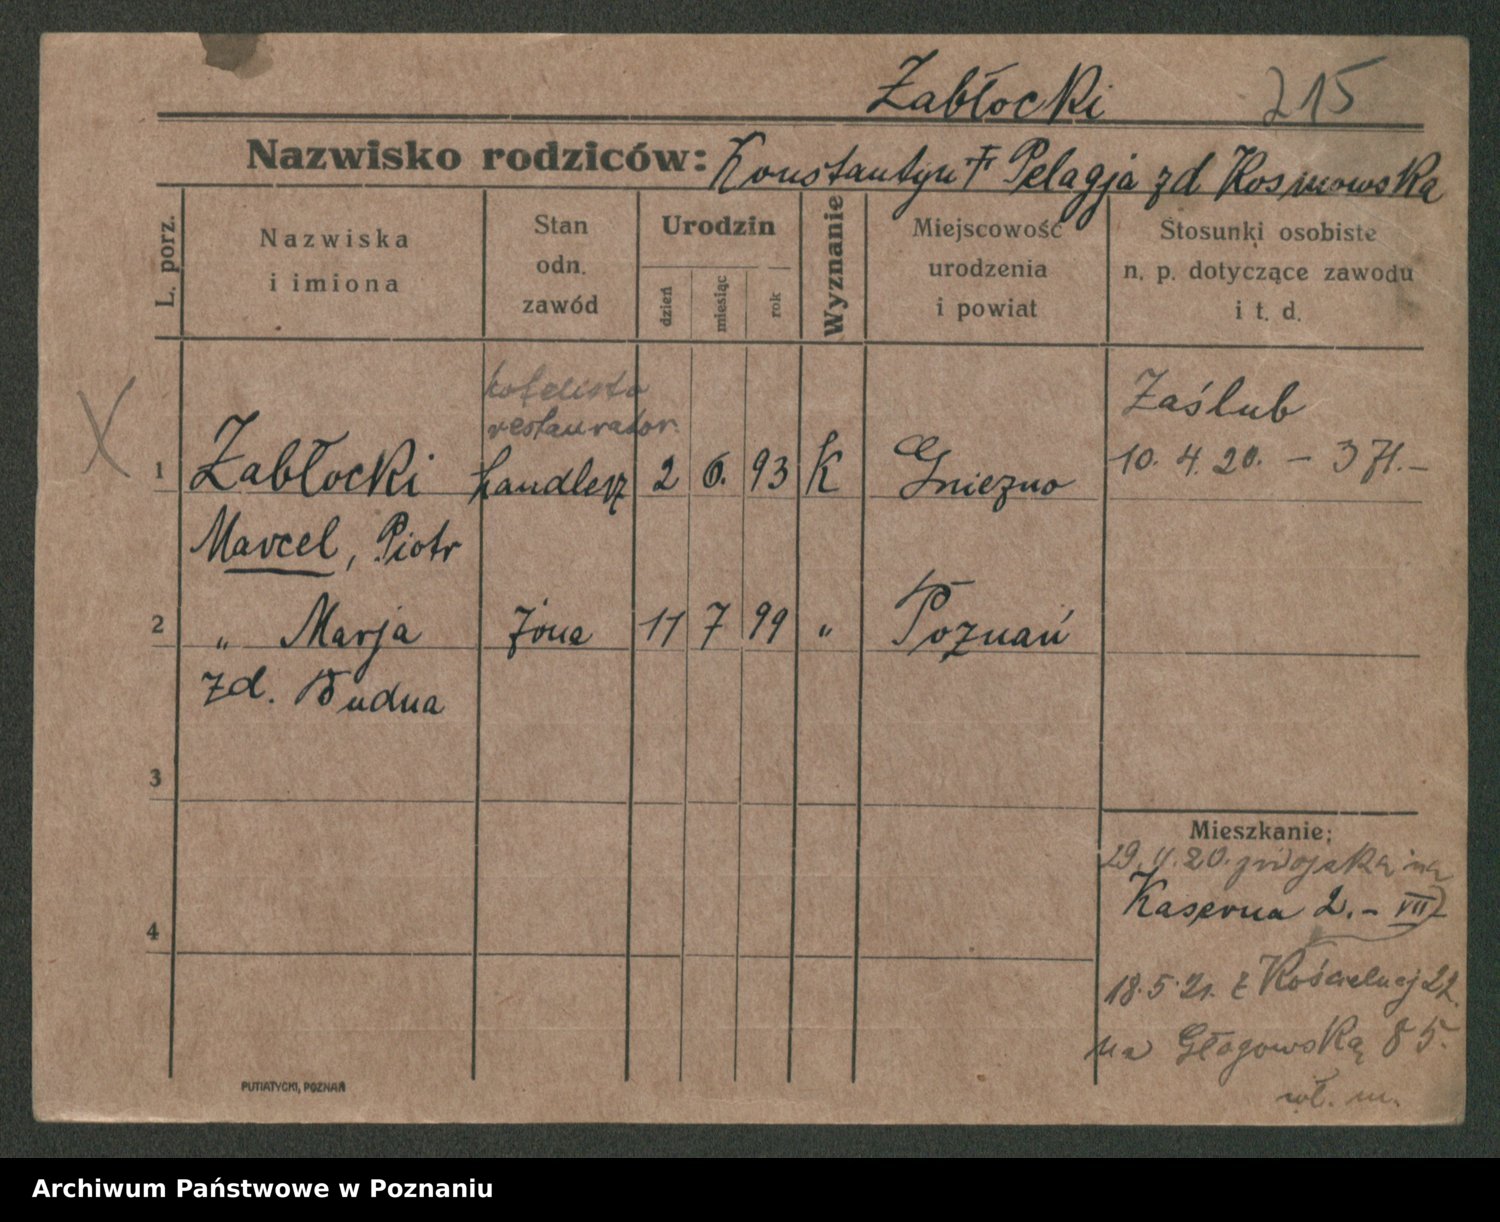 Zabłocki 215
Nazwisko rodziców: Konstantyn † Pelagja zd Kosmowska
L. porz.
Nazwiska
i imiona
Stan
odn.
zawód
Urodzin
dzień
miesiąc
rok
Wyznanie
Miejscowość
urodzenia
i powiat
Stosunki osobiste
n. p. dotyczące zawodu
i t. d.
X
hotelista
restaurador.
1 Zabłocki handlerz 2 6. 93 K Gniezno
Marcel, Piotr
Zaślub
10. 4. 20. – 371.–
2 „ Marja żona 11 7 99 „ Poznań
zd. Dudna
3
4
Mieszkanie:
29. 4. 20. z wojska na
Kaserna 2. – VII
18. 5. 21. z Kościelnej 22.
na Głogowską 85.
wł. m.
PUTIATYCKI, POZNAŃ
Archiwum Państwowe w Poznaniu